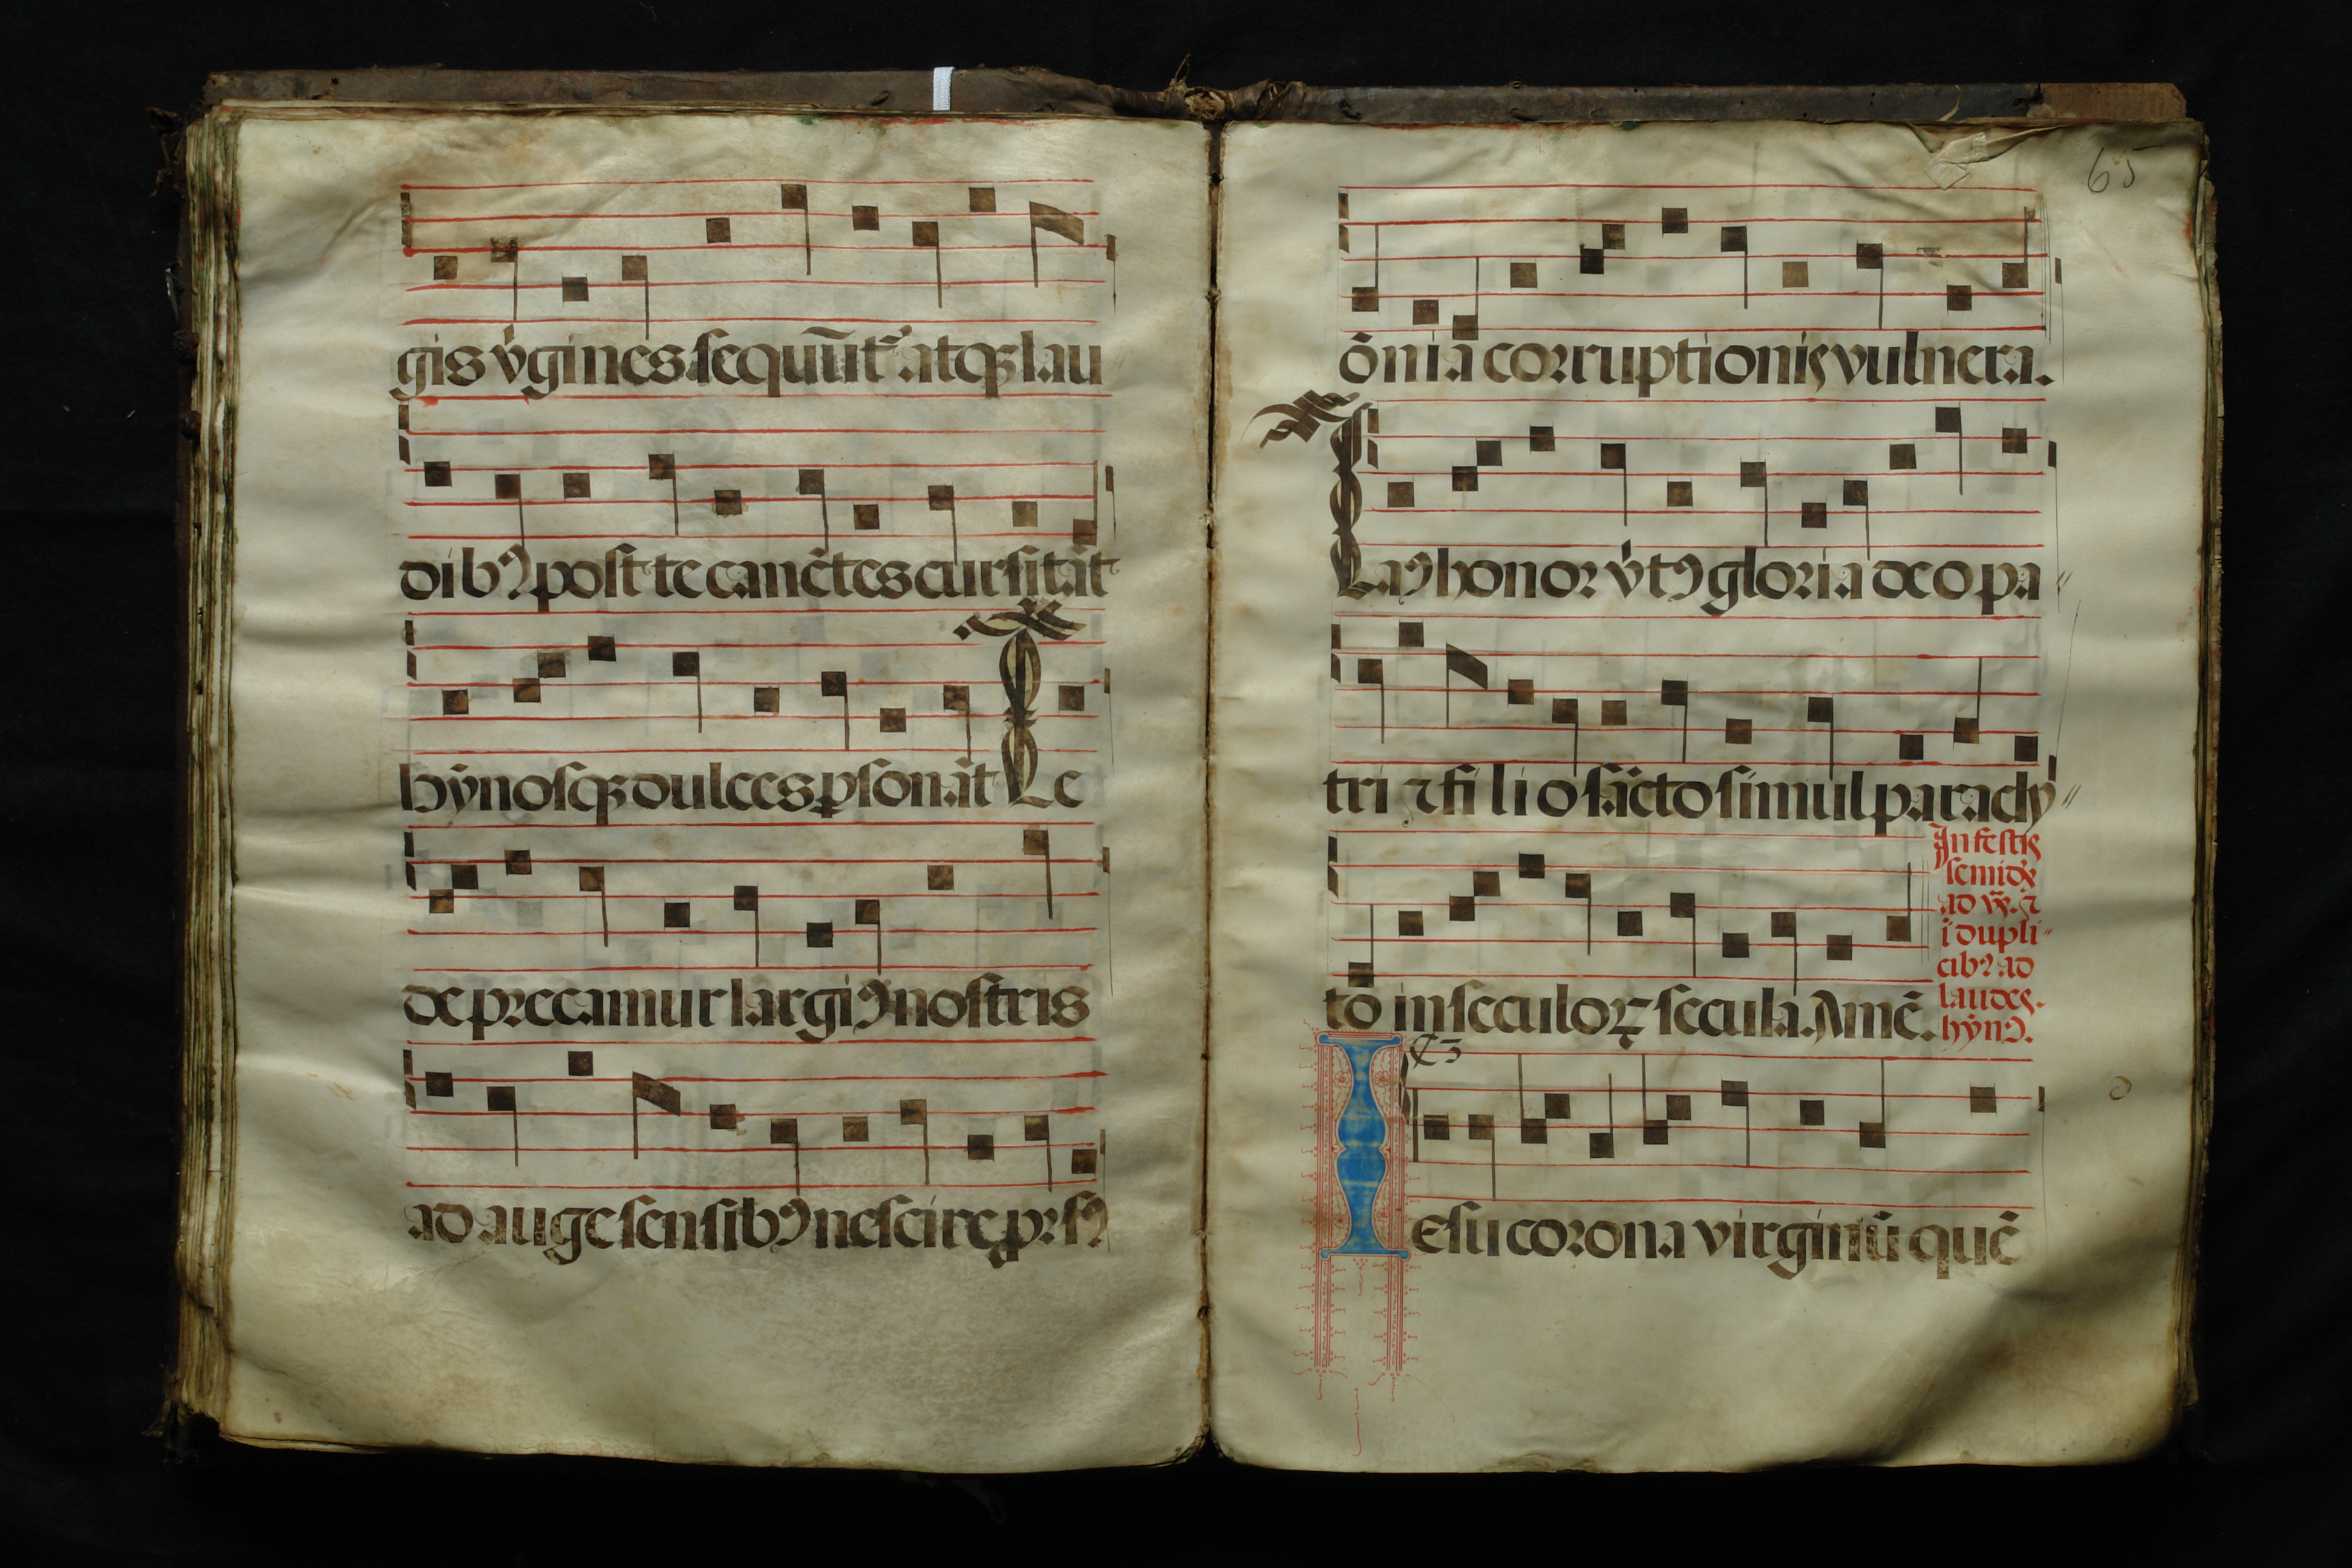 gis v̓gines sequūt᷑ atqꝫ lau
dibꝰ post te canētes cursitāt
hȳnosqꝫ dulces ꝑsonāt Te
deprecamur largiꝰ nostris
ad auge sensibꝰ nescire prorsꝰ
65
ōnia corruptionis vulnera.
Laꝰ honor v̓tꝰ gloria deo pa
tri ⁊ filio sācto simul paracly
to in seculoꝝ secula. Amē.
In festis
semidx̄
ad vꝭ. ⁊
ī dupli
cibꝰ ad
laudes.
hȳnꝰ.
Iesu corona virginū quē